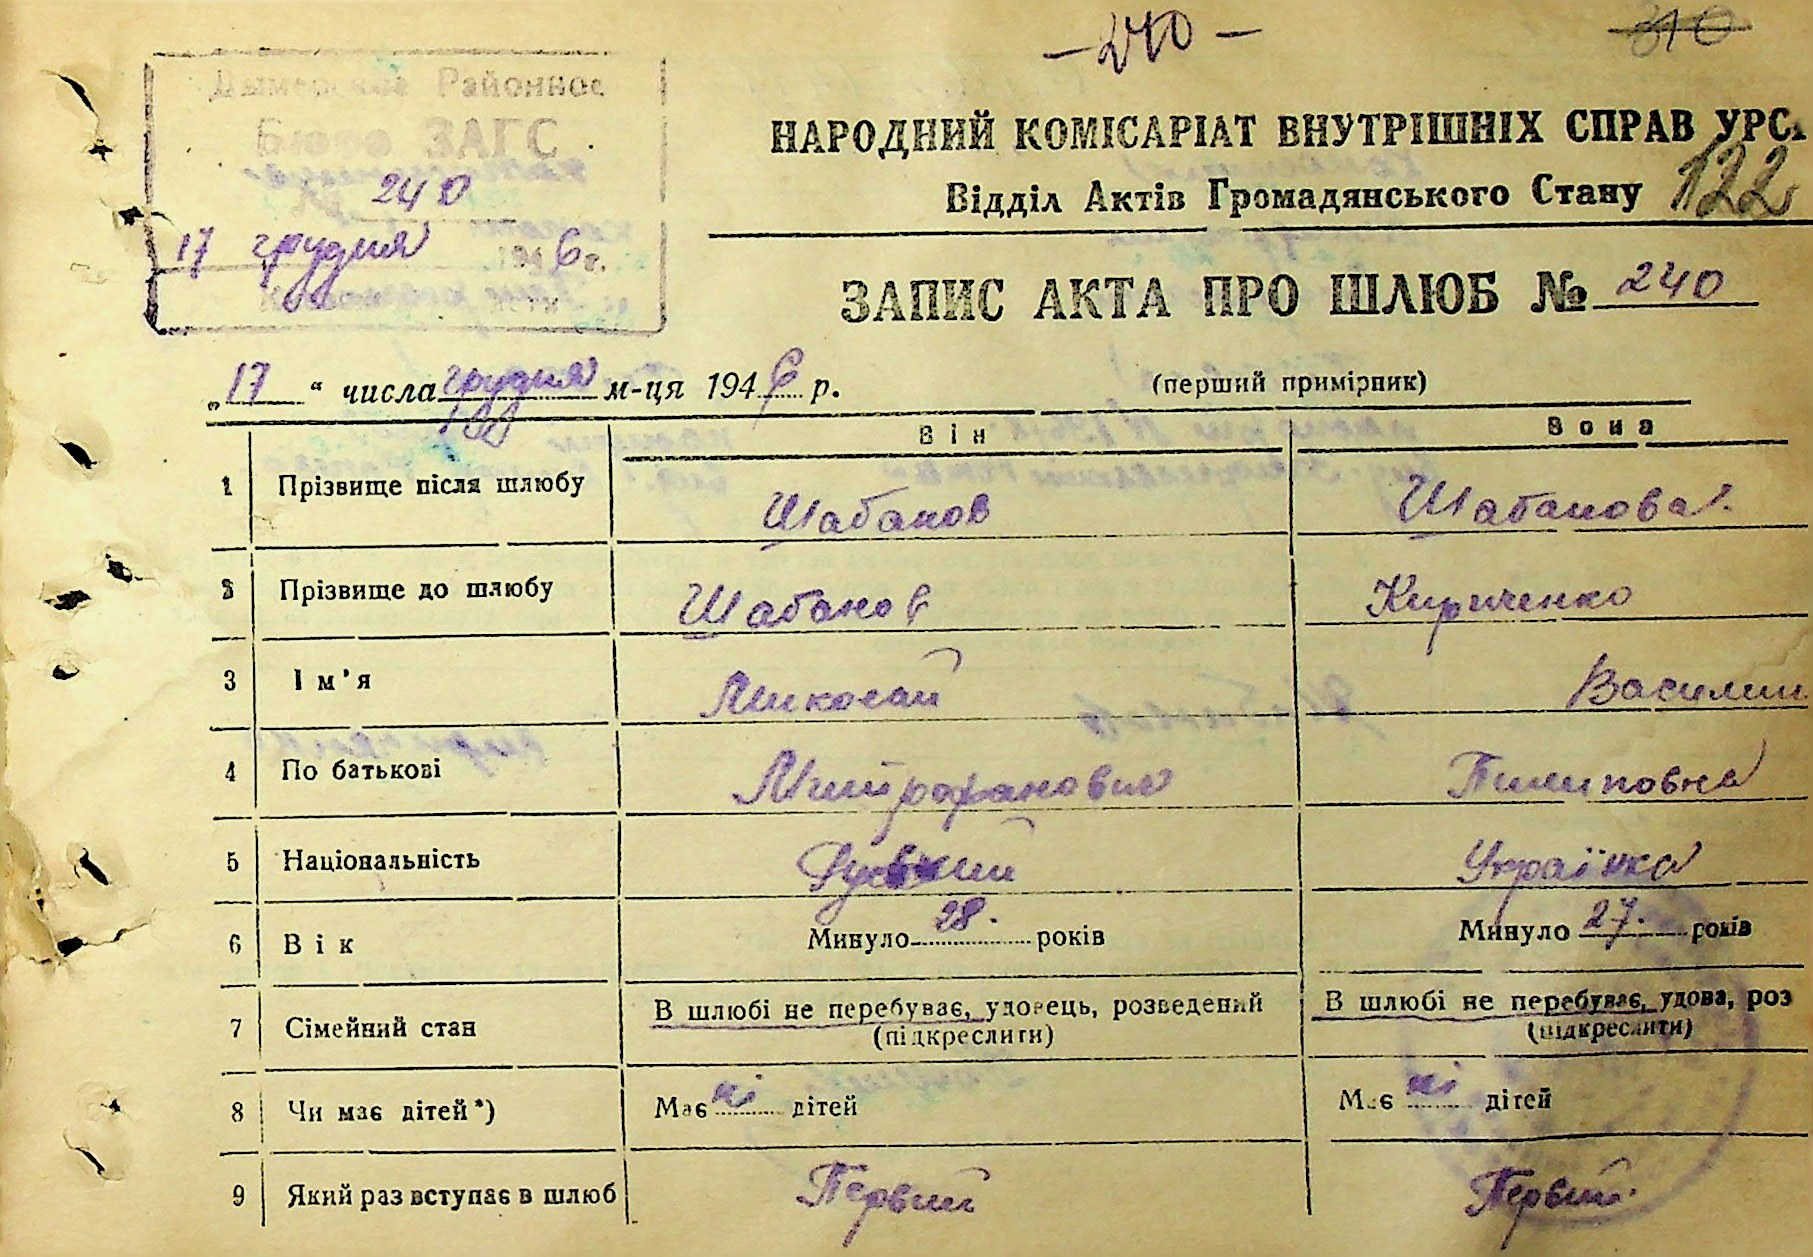 - 240 -
310
Дымерское Районное
Бюро ЗАГС
240
17 грудня 1946 г.
НАРОДНИЙ КОМІСАРІАТ ВНУТРІШНІХ СПРАВ УРСР
Відділ Актів Громадянського Стану 122
ЗАПИС АКТА ПРО ШЛЮБ № 240
„17" числа грудня м-ця 1946 р. (перший примірник)
Він Вона
1 Прізвище після шлюбу Шабанов Шабанова
2 Прізвище до шлюбу Шабанов Кириченко
3 Ім'я Миколай Василин
4 По батькові Митрофанович Пилиповна
5 Національність Руский Українка
6 Вік Минуло 28 років Минуло 27 років
7 Сімейний стан В шлюбі не перебуває, удовець, розведений В шлюбі не перебуває, удова, роз
(підкреслити) (підкреслити)
8 Чи має дітей*) Має ні дітей Має ні дітей
9 Який раз вступає в шлюб Первий Первий